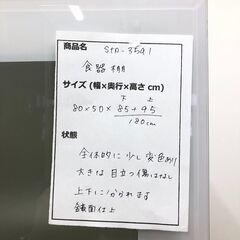 商品名 Stn-3591
食器棚
サイズ (幅×奥行×高さ cm)
下 上
80×50×85+95
180cm
状態
全体的に少し変色あり
大きな目立つ傷はなし
上下に分かれます
鏡面仕上